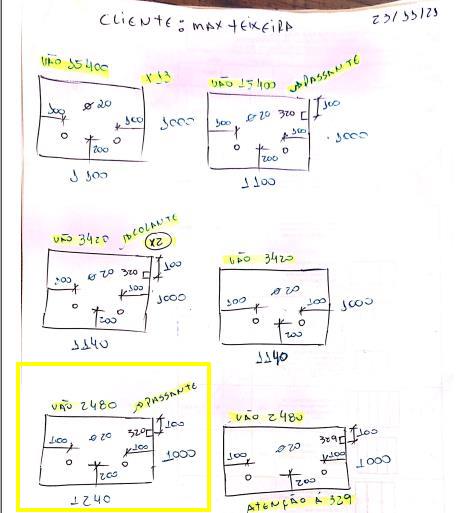 CLIENTE: MAX TEIXEIRA
23/11/21
VÃO 15400
X13
100
Ø20
100
200
1000
1100
VÃO 15400
PASSANTE
100
Ø20
320
100
100
200
1000
1100
VÃO 3420
X2
100
Ø20
320
100
100
200
1000
1140
VÃO 3420
100
Ø20
100
200
1000
1140
VÃO 2480
PASSANTE
100
Ø20
320
100
100
200
1000
1240
VÃO 2480
100
Ø20
329
100
100
200
1000
ATENÇÃO Á 329